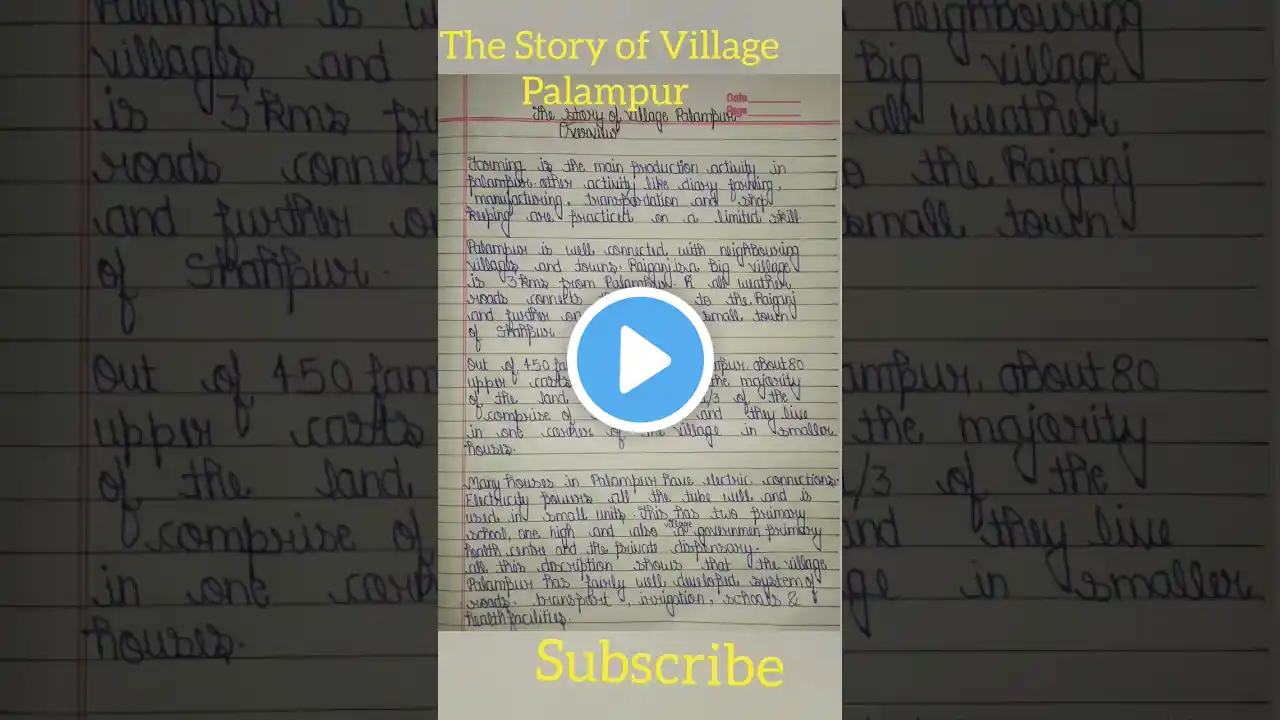 The Story of Village
Palampur
Date
Page
The Story of Village Palampur
Overview
Farming is the main production activity in
palampur. other activity like diary farming,
manufacturing, transportation and shop
keeping are practiced on a limited skill
Palampur is well connected with neighbouring
villages and towns. Raiganj is a Big village
is 3 kms from Palampur. A all weather
roads connects to the Raiganj
and further on small town
of Shahpur
Out of 450 about 80
upper casts the majority
of the land, 1/3 of the
comprise of and they live
in one corner of the village in smaller
houses.
Many houses in Palampur have electric connections.
Electricity powers all the tube well and is
used in small units. This has two primary
school, one high and also village government primary
health centre and the private dispensary.
all this discription shows that the village
Palampur has fairly well developed system of
roads, transport, irrigation, schools &
health facilities.
Subscribe